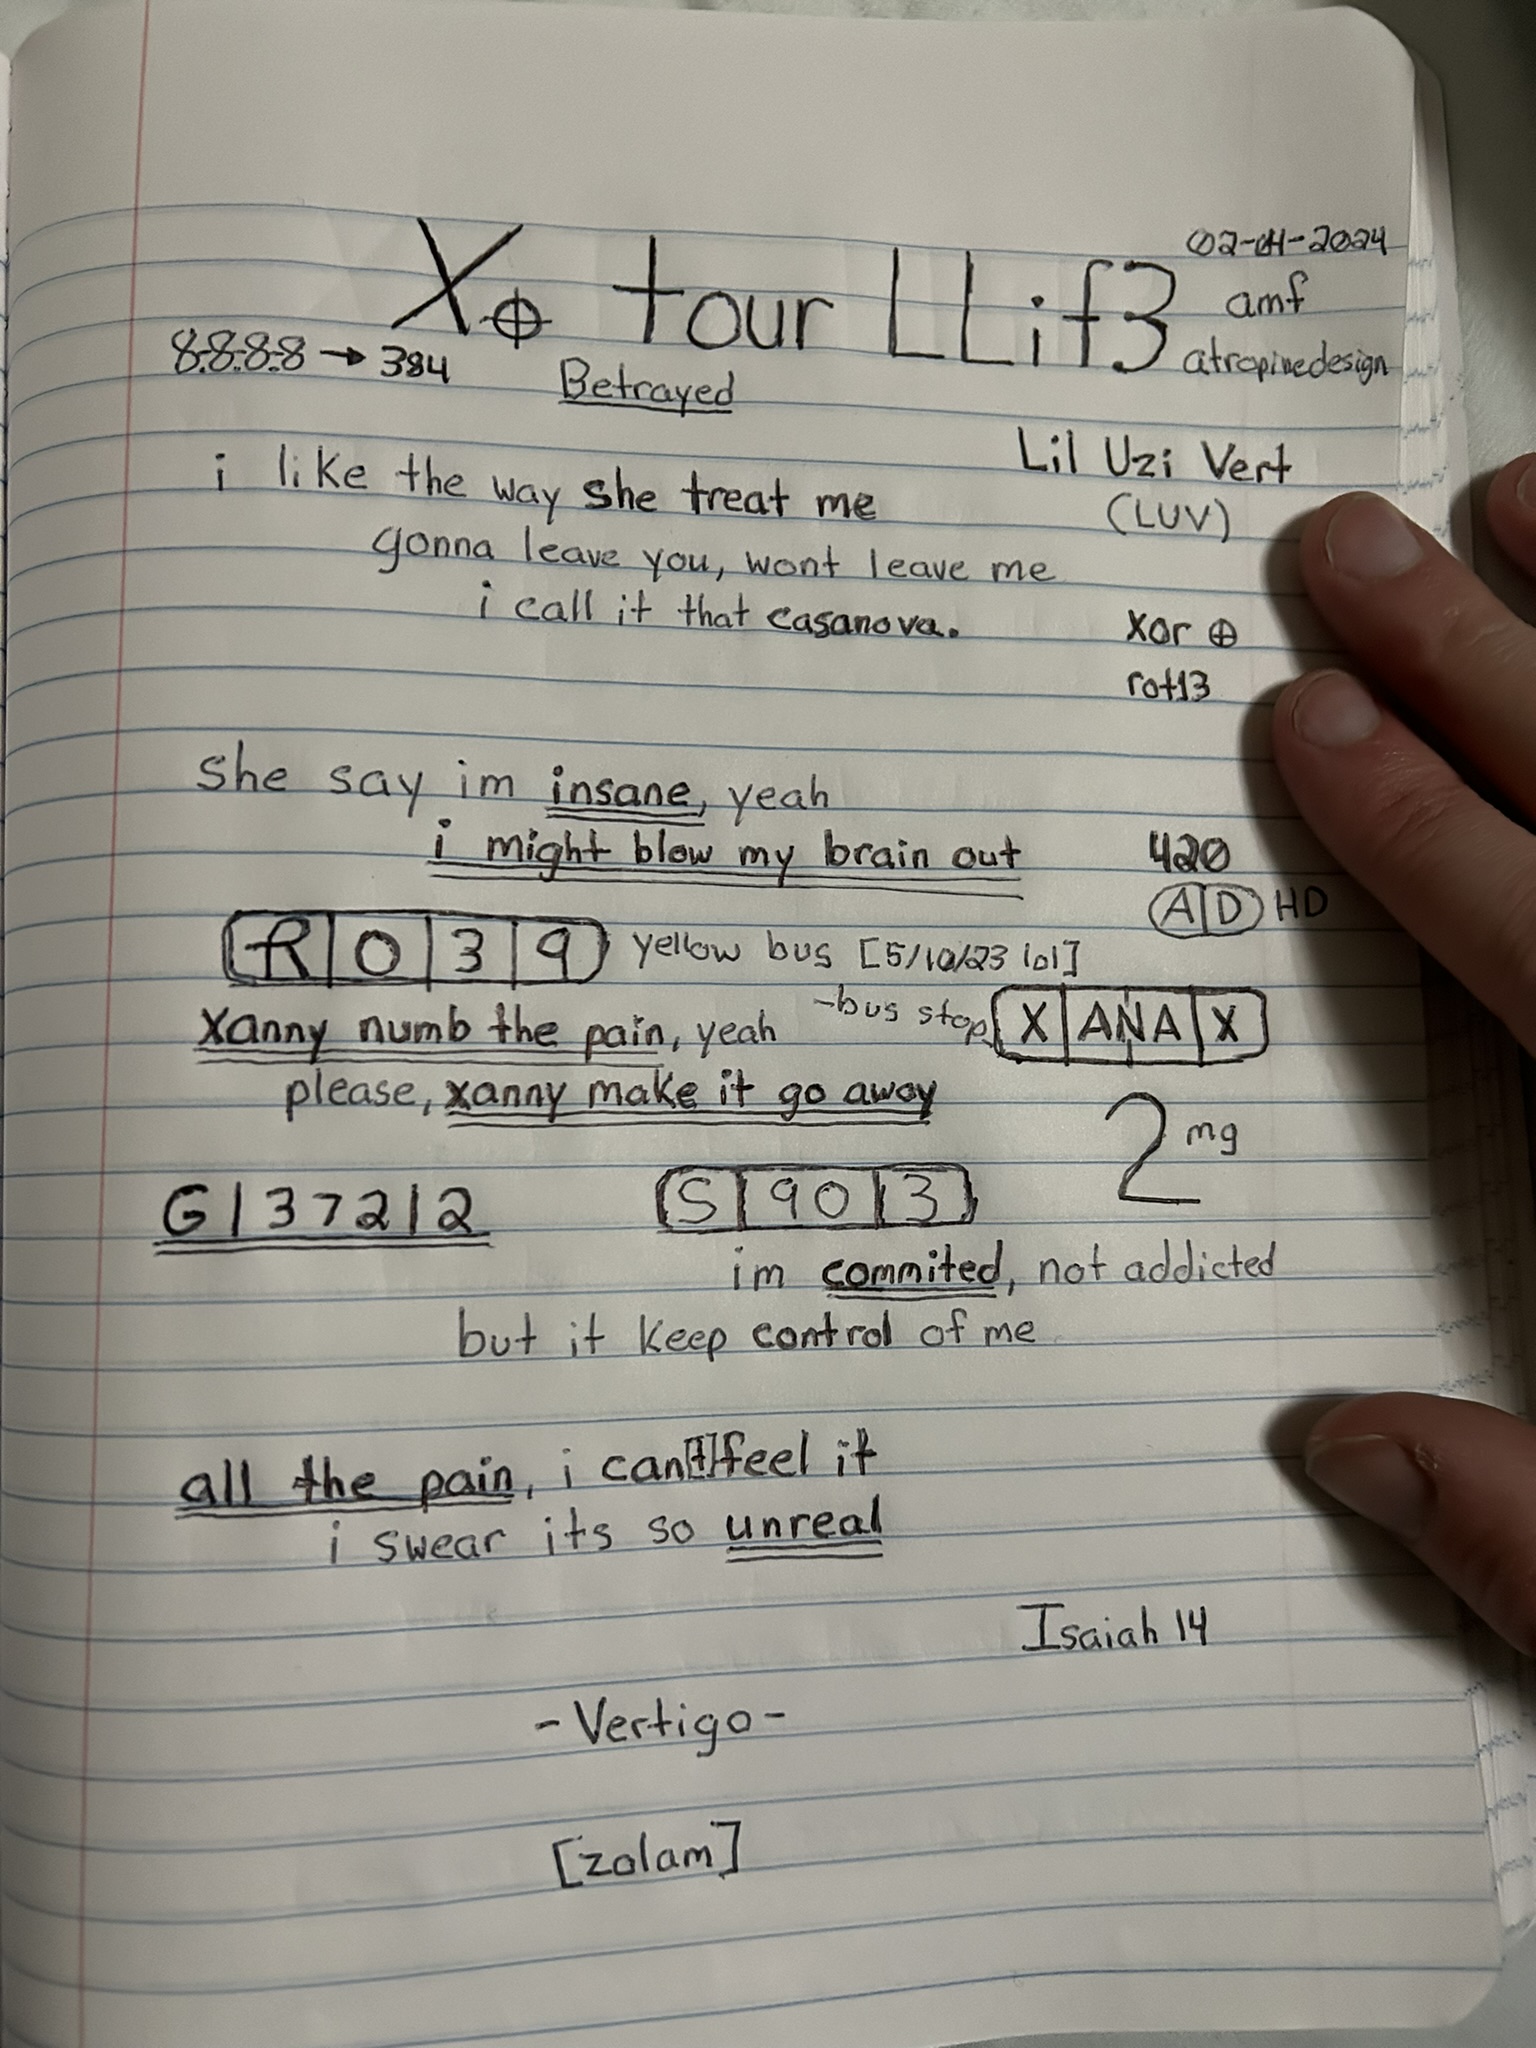 02-04-2024
X⊕ tour LLif3
amf
8.8.8.8 → 384
atropinedesign
Betrayed
Lil Uzi Vert
(LUV)
i like the way she treat me
gonna leave you, wont leave me
i call it that casanova.
xor ⊕
rot13
she say im insane, yeah
i might blow my brain out
420
A|D HD
R|0|3|9 yellow bus [5/10/23 lol]
-bus stop X|ANA|X
xanny numb the pain, yeah
please, xanny make it go away
2 mg
G|372|2
S|90|3
im commited, not addicted
but it keep control of me
all the pain, i can[t] feel it
i swear its so unreal
Isaiah 14
-Vertigo-
[zolam]